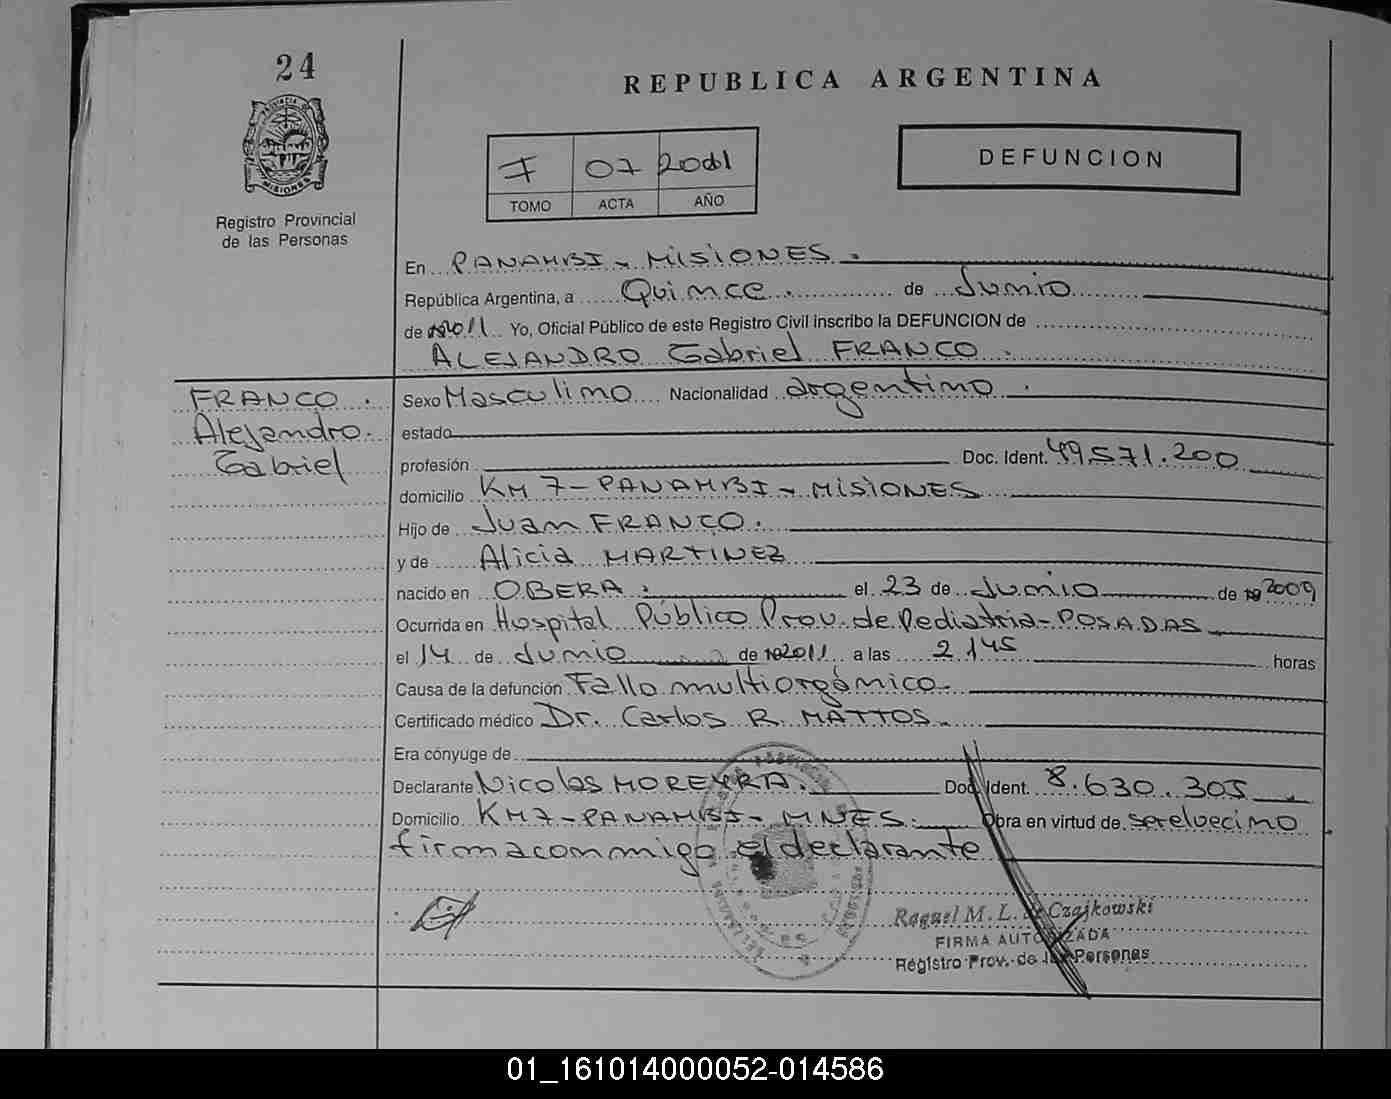 24
PROVINCIA DE MISIONES
Registro Provincial
de las Personas
REPUBLICA ARGENTINA
7 07 2011
TOMO ACTA AÑO
DEFUNCION
En PANAMBI - MISIONES.
República Argentina, a Quince. de Junio
de 2011 Yo, Oficial Público de este Registro Civil inscribo la DEFUNCION de
ALEJANDRO Gabriel FRANCO.
FRANCO.
Alejandro.
Gabriel
Sexo Masculino Nacionalidad argentino.
estado
profesión Doc. Ident. 49.571.200
domicilio KM 7 - PANAMBI - MISIONES
Hijo de Juan FRANCO.
y de Alicia MARTINEZ
nacido en OBERA. el 23 de Junio de 2009
Ocurrida en Hospital Público Prov. de Pediatria - POSADAS
el 14 de Junio de 2011 a las 21 45 horas
Causa de la defunción Fallo multiorgánico.
Certificado médico Dr. Carlos R. MATTOS.
Era cónyuge de
Declarante Nicolas MOREYRA. Doc. Ident. 8.630.305
Domicilio KM7 - PANAMBI - MNES. Obra en virtud de ser el vecino
firma conmigo el declarante
Raquel M. L. Czajkowski
FIRMA AUTORIZADA
Registro Prov. de las Personas
01_161014000052-014586